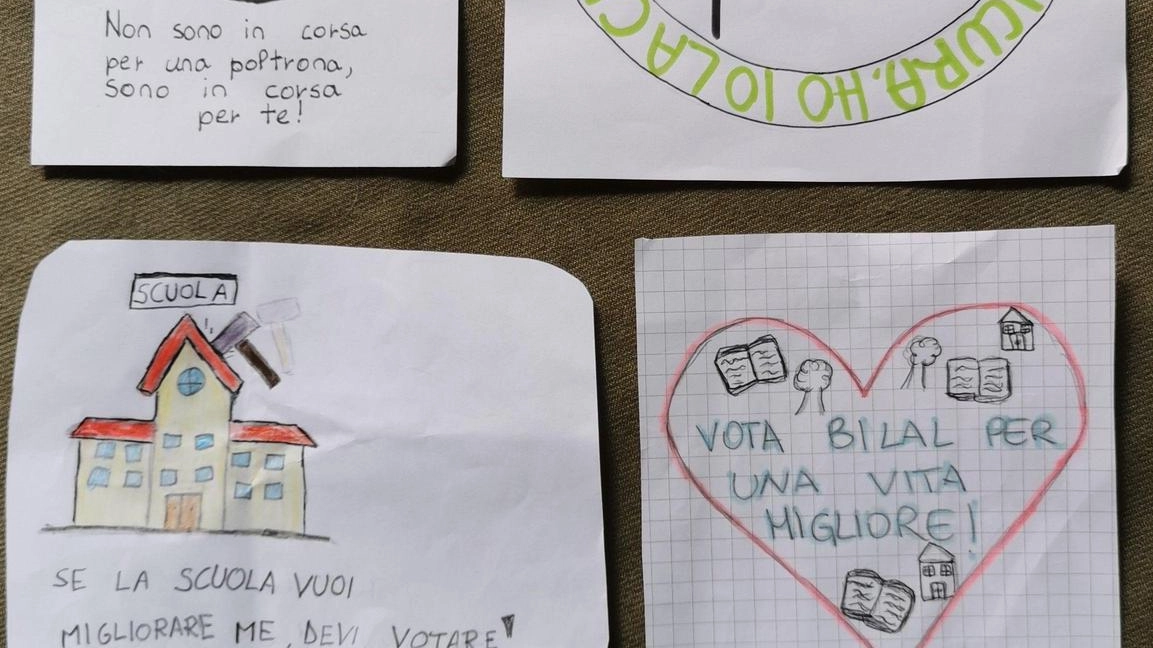 Non sono in corsa
per una poltrona,
sono in corsa
per te!
CURA. HO IO LA C
SCUOLA
SE LA SCUOLA VUOI
MIGLIORARE ME, DEVI VOTARE
VOTA BILAL PER
UNA VITA
MIGLIORE!